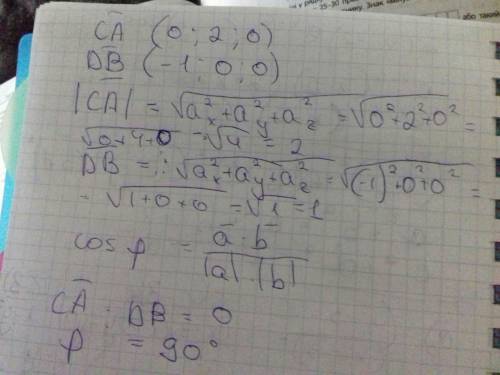 C̅A̅ (0 ; 2 ; 0)
D̅B̅ (-1 ; 0 ; 0)
|CA| = √(aₓ² + a_y² + a_z²) = √(0² + 2² + 0²) =
√(0+4+0) = √4 = 2
DB = √(aₓ² + a_y² + a_z²) = √((-1)² + 0² + 0²) =
= √(1+0+0) = √1 = 1
cos φ = a̅ · b̅ / |a| · |b|
C̅A̅ · DB = 0
φ = 90°